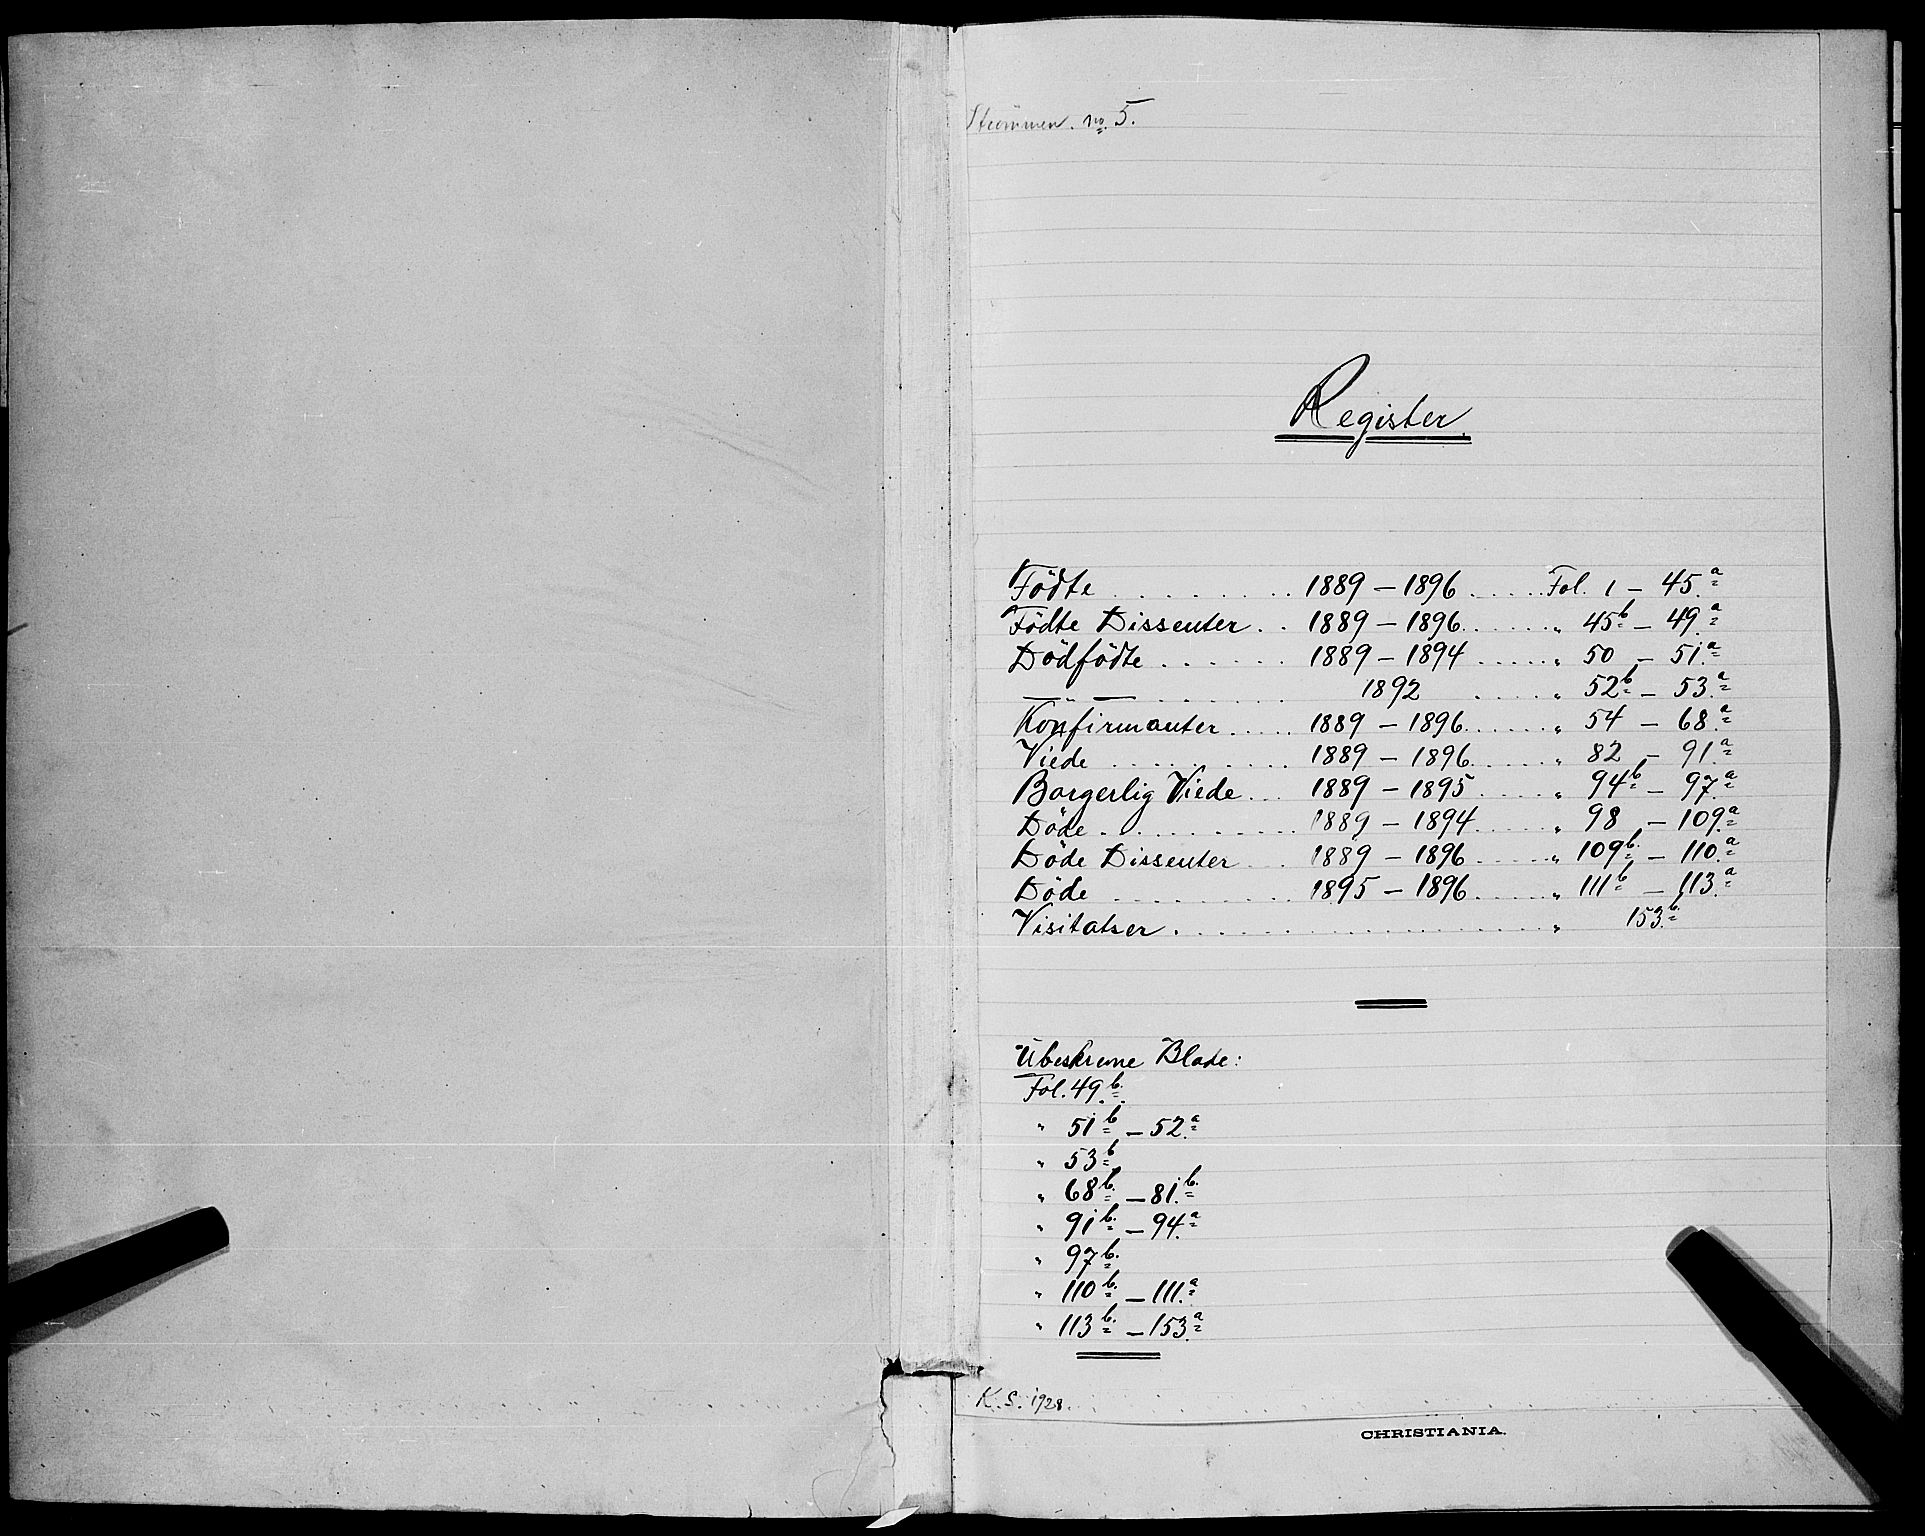 Strømmen. no. 5.
Register.
Födte . . . . . . . . . 1889 – 1896 . . . . . Fol. 1 – 45.a
Födte Dissenter . . 1889 – 1896 . . . . . . „ 45b – 49.a
Dödfödte . . . . . . 1889 – 1894 . . . . . „ 50 – 51.a
— „ — . . . . . . . 1892 . . . . . „ 52b – 53.a
Konfirmanter . . . . . 1889 – 1896 . . . . . . „ 54 – 68.a
Viede . . . . . . . . . 1889 – 1896 . . . . . . „ 82 – 91.a
Borgerlig Viede . . . 1889 – 1895 . . . . . „ 94b – 97.a
Döde . . . . . . . . . . 1889 – 1894 . . . . . . „ 98 – 109.a
Döde Dissenter . . . 1889 – 1896 . . . . . „ 109b. – 110.a
Döde . . . . . . . . . 1895 – 1896 . . . . . „ 111b – 113.a
Visitatser . . . . . . . . . . . . . . . . . . . „ 153b.
Ubeskrevne Blade:
Fol. 49.b.
„ 51b – 52.a
„ 53b
„ 68b. – 81.b.
„ 91b. – 94.a
„ 97b.
„ 110b. – 111.a
„ 113b. – 153.a
K. S. 1928.
CHRISTIANIA.